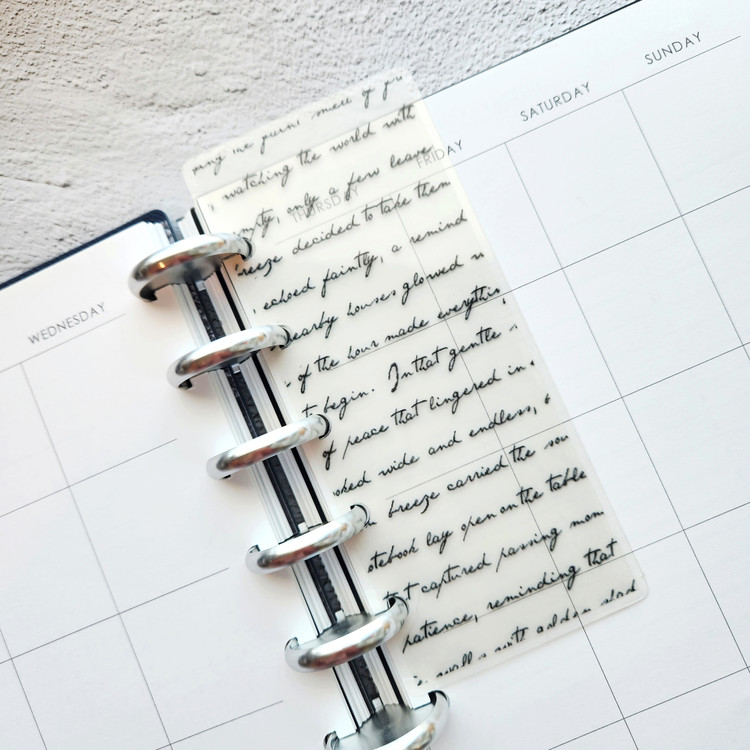 WEDNESDAY
THURSDAY
FRIDAY
SATURDAY
SUNDAY
smell of
watching the world with
only a few leave
decided to take them
echoed faintly, a remind
nearby houses glowed
of the hour made everythin
begin. In that gentle
of peace that lingered in
wide and endless,
breeze carried the sou
otebook lay open on the table
captured passing mom
patience, reminding that